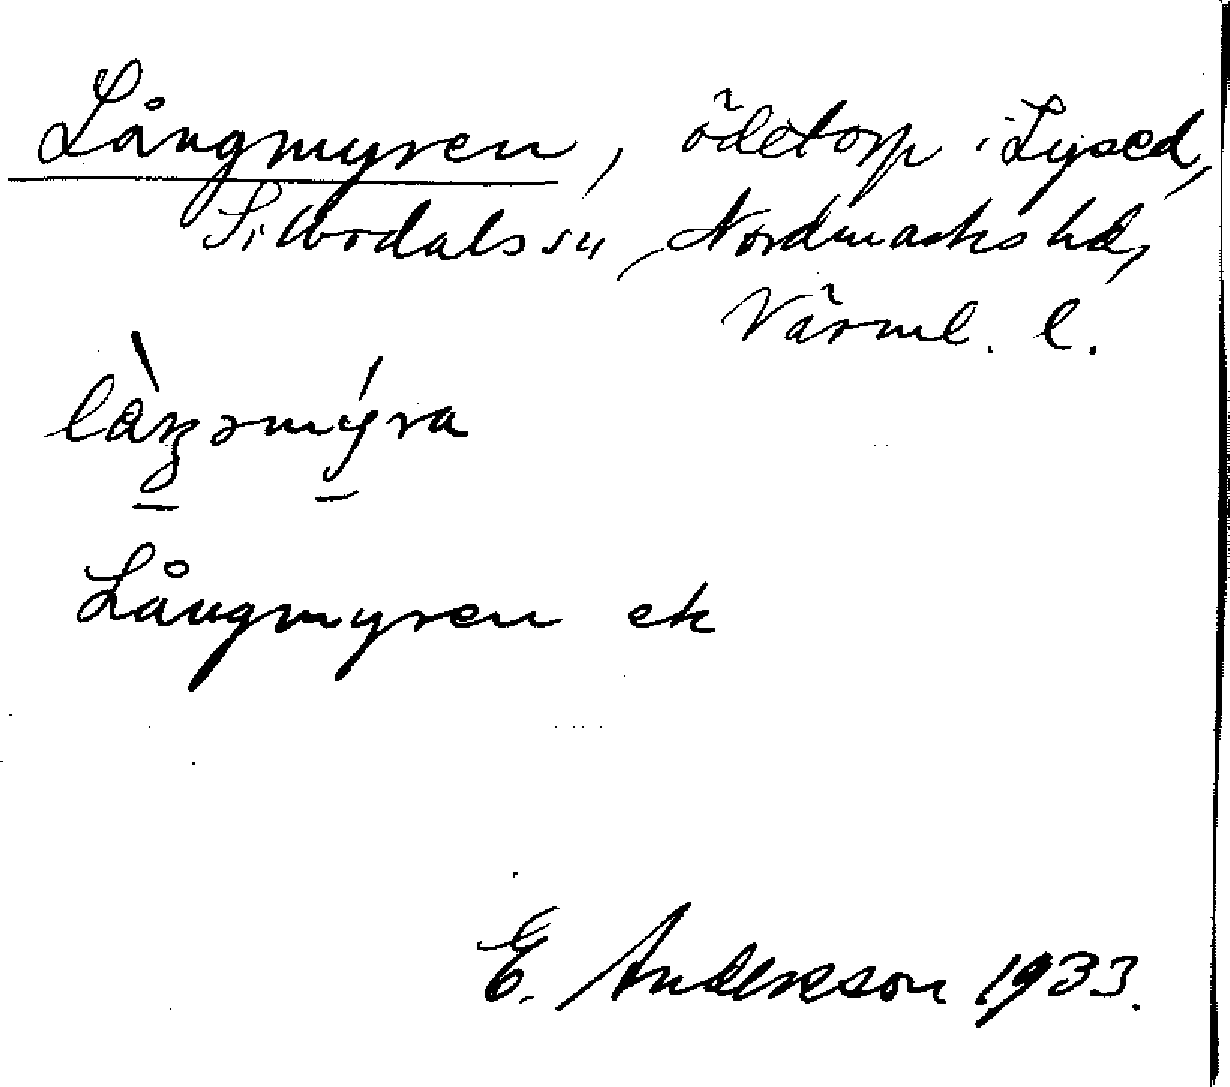 Långmyren, ödetorp i Lysed,
Silbodals sn, Nordmarks hd,
Värml. l.
Långmyren ek
E. Andersson 1933.